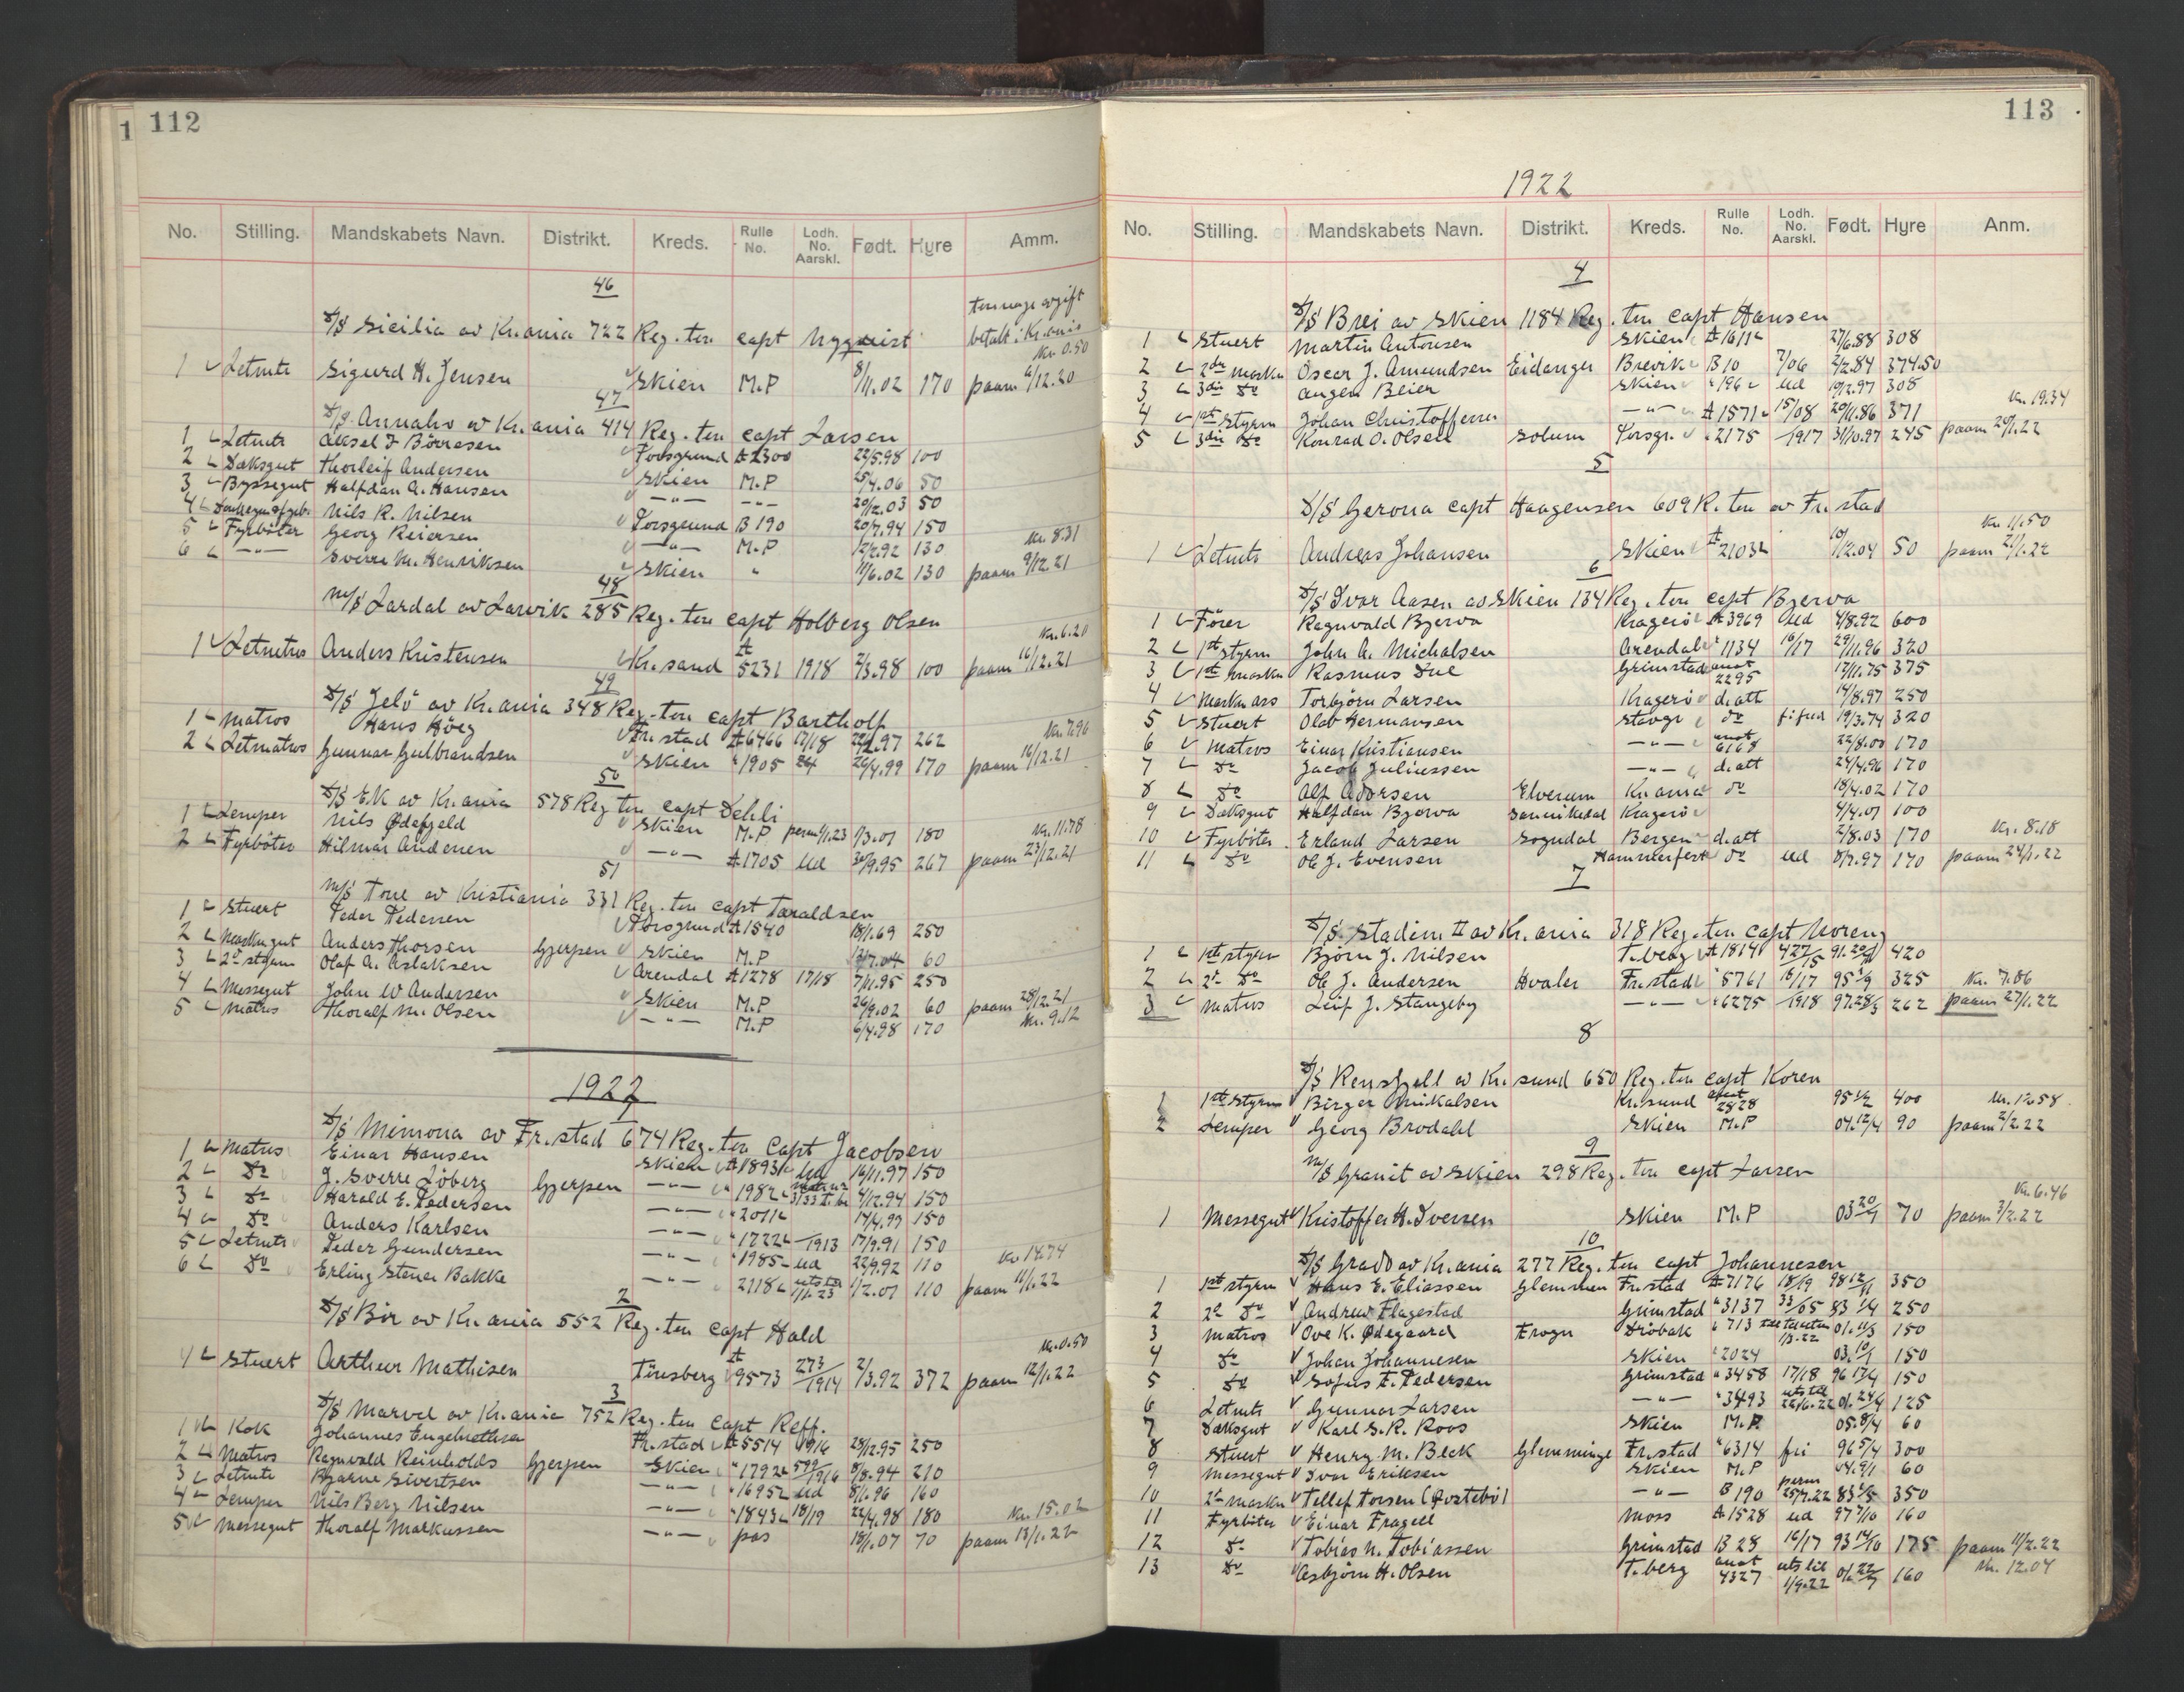 1 112
No. Stilling. Mandskabets Navn. Distrikt. Kreds. Rulle No. Lodh. No. Aarskl. Født. Hyre Amm.
46
S/S Sicilia av Kr.ania 722 Reg. ton capt Nyquist
tonnage avgift
betalt i Kr.ania
Kr. 0.50
1 Letmts Sigurd H. Jensen Skien M.P 8/11.02 170 paam 6/12.20
47
S/S Annaho av Kr.ania 414 Reg. ton capt Larsen
1 Letmts Aksel F Börresen Porsgrund A 2300 22/5.98 100
2 Dæksgut Thorleif Andersen Skien M.P 25/4.06 50
3 Byssegut Halfdan A. Hansen -"- -"- 20/12.03 50
4 Nils R. Nilsen Porsgrund B 190 20/7.94 150
5 Fyrböter Georg Reiersen -"- M.P 12/7.92 130 Kr. 8.31
6 -"- Sverre M. Henriksen Skien " 11/6.02 130 paam 9/12.21
48
M/S Lardal av Larvik 285 Reg. ton capt Holberg Olsen
Kr. 6.20
1 Letmtrs Anders Kristensen Kr.sand A 5231 1918 2/3.98 100 paam 16/12.21
49
S/S Jelö av Kr.ania 348 Reg. ton capt Bartholf
1 Matros Hans Höeg Fr.stad A 6466 17/18 .97 262 Kr. 7.96
2 Letmatros Gunnar Gulbrandsen Skien " 1905 24 26/4.99 170 paam 16/12.21
50
S/S E.K av Kr.ania 578 Reg ton capt Dehli
1 Lemper Nils Ødefjeld Skien M.P perm 1/1.23 1/3.01 180 Kr. 11.78
2 Fyrböter Hilmar Andersen -"- A 1705 Ud 30/9.95 267 paam 23/12.21
51
M/S Tore av Kristiania 331 Reg. ton capt Taraldsen
1 Stuert Peder Pedersen Porsgrund A 1540 18/1.69 250
2 Maskngut Anders Thorsen Gjerpen Skien M.P 13/7.04 60
3 2d styrm Olaf A. Aslaksen Arendal A 1278 17/18 7/11.95 250
4 Messegut John W Andersen Skien M.P 26/9.02 60 paam 28/12.21
5 Matros Thoralf M. Olsen -"- M.P 6/4.98 170 Kr. 9.12
1922
1
S/S Mimona av Fr.stad 674 Reg. ton Capt Jacobsen
1 Matros Einar Hansen Skien A 1893 Ud 16/11.97 150
2 Do J. Sverre Löberg Gjerpen -"- " 1982 4/12.94 150
3 Do Harald E. Pedersen -"- " 2011 14/4.99 150
4 Do Anders Karlsen -"- " 1722 1913 17/9.91 150
5 Letmts Peder Gundersen -"- " 1985 Ud 22/9.92 110 Kr 14.74
6 Do Erling Stener Bakke -"- " 2118 utsta 1/11.23 1/2.01 110 paam 11/1.22
2
S/S Bir av Kr.ania 552 Reg. ton capt Hald
Kr. 0.50
1 Stuert Arthur Mathisen Tönsberg A 9573 273/1914 2/3.92 372 paam 12/1.22
3
S/S Marvel av Kr.ania 752 Reg. ton capt Reff.
1 Kok Johannes Engebrethsen Fr.stad A 5514 1916 28/12.95 250
2 Matros Ragnvald Reinholds Gjerpen Skien " 1792 599/1916 8/8.94 210
3 Letmts Bjarne Sivertsen -"- " 1695 Ud 8/1.96 160
4 Lemper Nils Berg Nilsen -"- " 1843 18/19 22/4.98 180 Kr. 15.02
5 Messegut Thoralf Markussen -"- pas 18/1.07 70 paam 13/1.22
113
1922
No. Stilling. Mandskabets Navn. Distrikt. Kreds. Rulle No. Lodh. No. Aarskl. Født. Hyre Anm.
4
S/S Brei av Skien 1184 Reg. ton capt Hansen
1 Stuert Martin Antonsen Skien A 1611 27/6.88 308
2 2den maskn Oscar J. Amundsen Eidanger Brevik B 10 7/06 2/2.84 374.50
3 3die Do Augen Beier Skien " 196 Ud 19/2.97 308
4 1st Styrm Johan Christoffersen -"- A 1571 15/08 20/11.86 371 Kr. 19.34
5 3die Do Konrad O. Olsen Solum Porsgr. " 2175 1917 31/10.97 245 paam 20/1.22
5
S/S Gerona capt Haagensen 609 R. ton av Fr.stad
Kr. 11.50
1 Letmts Andreas Johansen Skien A 2103 10/12.04 50 paam 21/1.22
6
S/S Ivar Aasen av Skien 134 Reg. ton capt Bjerva
1 Förer Ragnvald Bjerva Kragerö A 3969 Ud 4/8.92 600
2 1st styrm John A. Michalsen Arendal " 1134 16/17 29/11.96 320
3 1st maskn Rasmus Dul Grimstad anot 2295 17/11.75 375
4 Maskn ass Torbjörn Larsen Kragerö d.att 14/8.97 250
5 Stuert Olab Hermansen Stavgr do 19/3.74 320
6 Matros Einar Kristiansen -"- anot 6168 22/8.00 170
7 Do Jacob Juliussen -"- d.att 24/4.96 170
8 Do Alf Adorsen Elverum Kr.ania do 18/4.02 170
9 Dæksgut Halfdan Bjerva Sannikedal Kragerö 4/4.07 100
10 Fyrböter Erland Larsen Sogndal Bergen d.att 2/8.03 170 Kr. 8.18
11 Do Ole J. Evensen Hammerfest do Ud 8/7.97 170 paam 24/1.22
7
S/S Stadion II av Kr.ania 318 Reg. ton capt Noreng
1 1ste styrm Björn J. Nilsen T.berg A 1814 427/15 91. 420
2 2d Do Ole J. Andersen Hvaler Fr.stad " 5761 16/17 95 5/9 325 Kr. 7.86
3 Matros Leif J. Stangeby -"- " 6275 1918 97.28/3 262 paam 27/1.22
8
S/S Rensfjell av Kr.sund 650 Reg. ton capt Koren
1 1ste Styrm Birger Mikalsen Kr.sund anot 2828 95 1/2 400 Kr. 12.58
2 Lemper Georg Brodahl Skien M.P 04.12/4 90 paam 2/2.22
9
M/S Granit av Skien 298 Reg. ton capt Larsen
Kr. 6.46
1 Messegut Kristoffer H. Iversen Skien M.P 03 20/7 70 paam 3/2.22
10
S/S Grado av Kr.ania 277 Reg. ton capt Johannesen
1 1ste styrm Hans E. Eliassen Glemmen Fr.stad A 7176 18/19 98 12/11 350
2 2d Do Andrew Flagestad Grimstad " 3137 33/05 83 1/4 250
3 Matros Ove K. Ødegaard Frogn Dröbak " 713 1/3.22 01.11/3 150
4 Do Johan Johannesen Skien " 2024 03.10/1 150
5 Do Sofus E. Pedersen Grimstad " 3458 17/18 96 17/4 150
6 Letmts Gunnar Larsen -"- " 3493 uts til 22/6.22 01.24/4 125
7 Dæksgut Karl S.R. Roos Skien M.P 05.8/4 60
8 Stuert Henry M. Beck Glemminge Fr.stad " 6314 fri 96 5/4 300
9 Messegut Ivar Eriksen Skien M.P 04.9/1 60
10 2de maskn Tellef Torsen (Østebö) -"- B 190 perm 25/7.22 83 2/5 350
11 Fyrböter Einar Fragell Moss A 1528 ud 97 7/10 160
12 Do Tobias N. Tobiassen Grimstad B 28 16/17 93 14/10 175 paam 11/2.22
13 Do Asbjörn H. Olsen T.berg anot 4327 uts til 1/9.22 01.22/7 160 Kr. 12.04